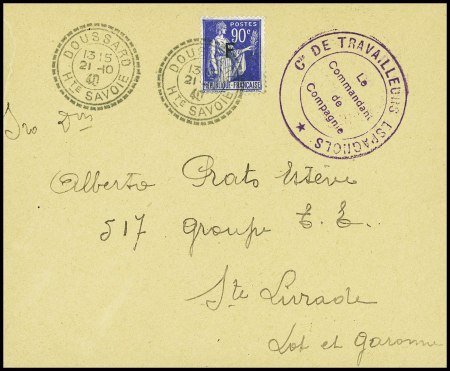 DOUSSARD
13 15
21-10
40
HTE SAVOIE
DOUSSARD
13
21
40
HTE SAVOIE
POSTES
90c
F
REPUBLIQUE FRANÇAISE
Cie DE TRAVAILLEURS ESPAGNOLS ★
Le
Commandant
de
Compagnie
Alberto Prats Estève
517 Groupe T. E.
Ste Livrade
Lot et Garonne